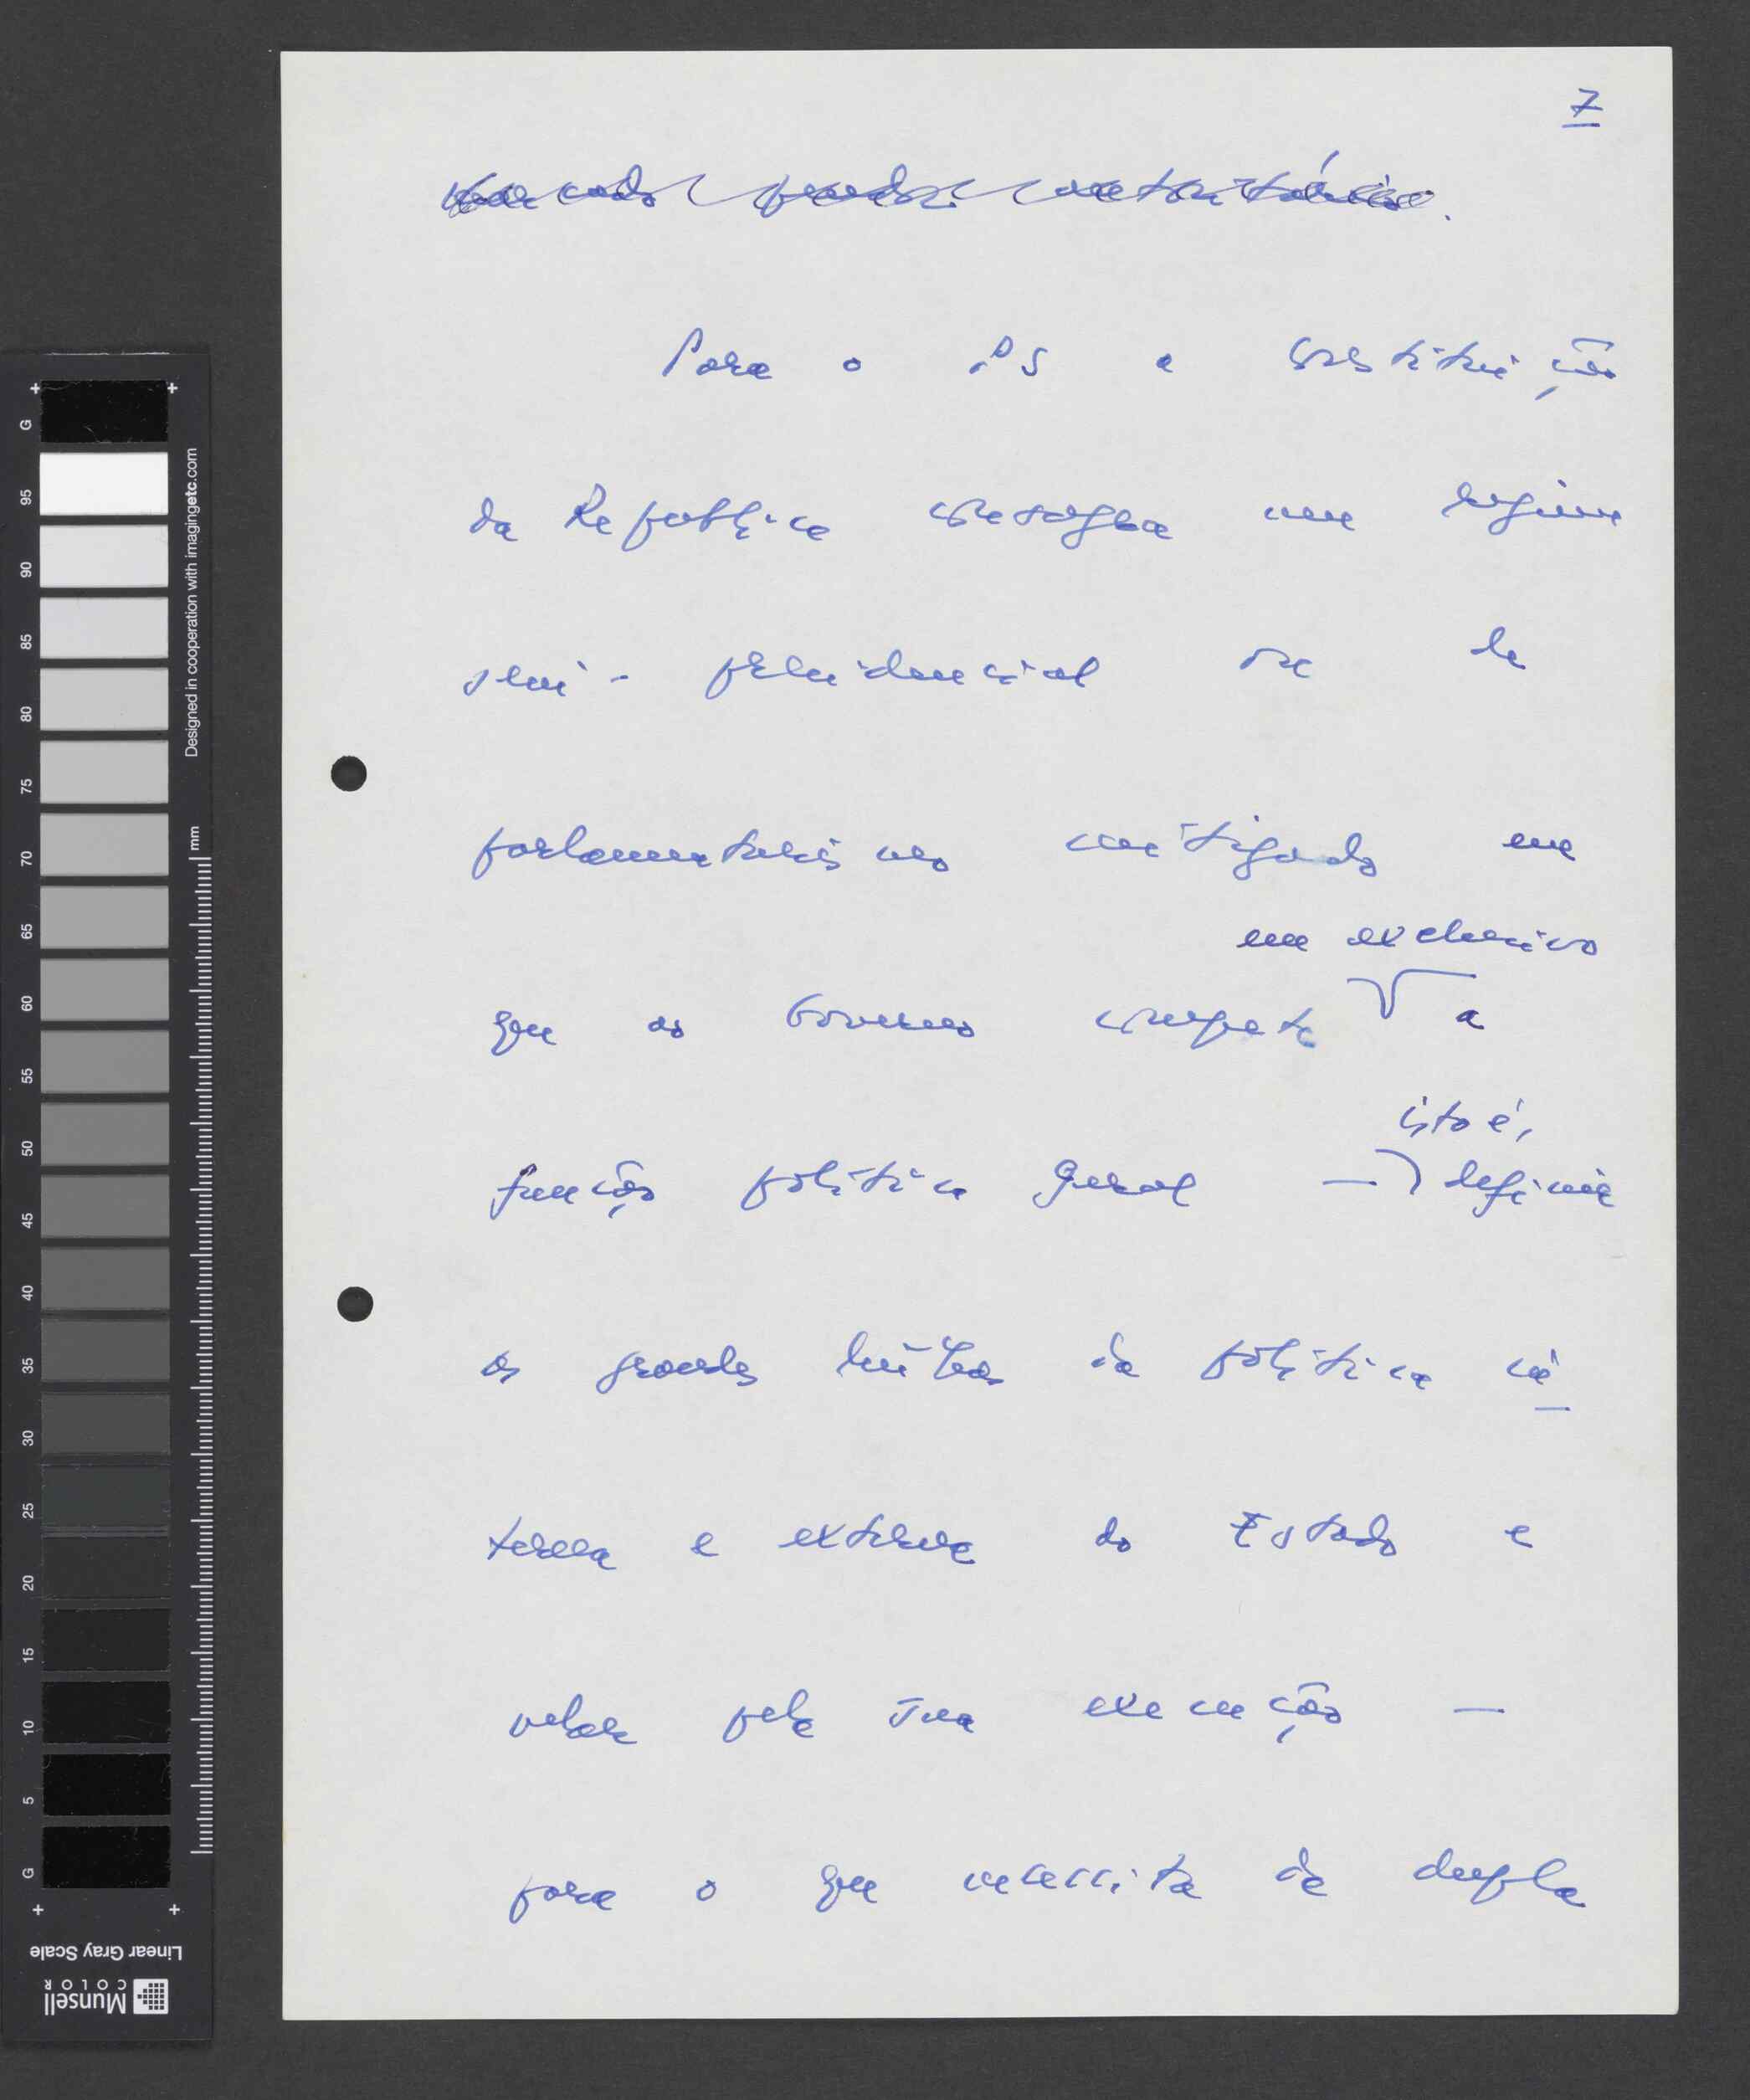 7
Para o PS a Constituição
da República consagra um regime
semi-presidencial ou de
parlamentarismo mitigado em
em exclusivo
que ao Governo compete a
isto é,
função política geral — definir
as grandes linhas da política in
terna e externa do Estado e
velar pela sua execução —
para o que necessita de dupla
G
95
90
85
80
75
70
65
60
55
50
45
40
35
30
25
20
15
10
5
G
Designed in cooperation with imagingetc.com
mm
Linear Gray Scale
Munsell
COLOR